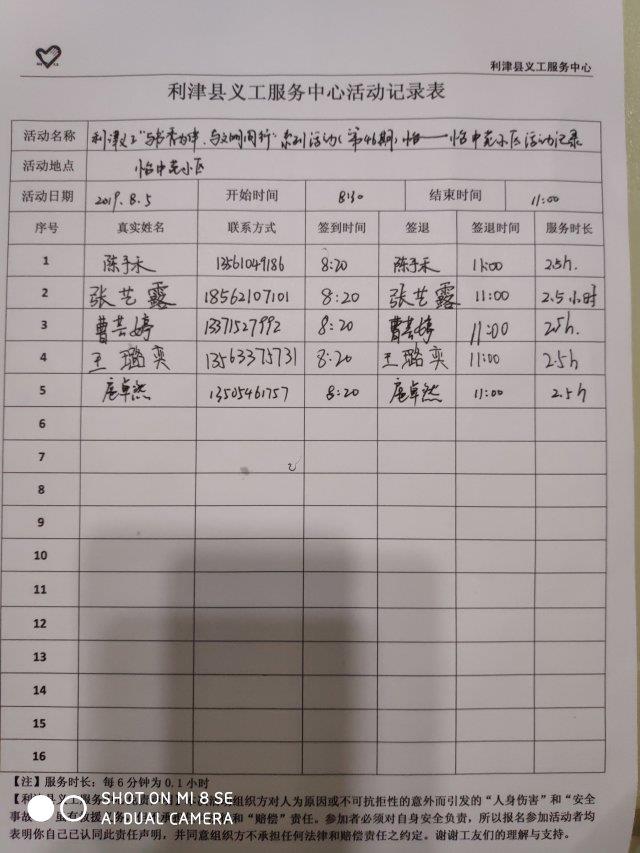 利津县义工服务中心
利津县义工服务中心活动记录表
活动名称 利津义工"与书香为伴，与文明同行"系列活动(第46期)怡——怡中苑小区活动记录
活动地点 怡中苑小区
活动日期 2019.8.5 开始时间 8:30 结束时间 11:00
序号 真实姓名 联系方式 签到时间 签退 签退时间 服务时长
1 陈予禾 13561049186 8:20 陈予禾 11:00 2.5h.
2 张艺露 18562107101 8:20 张艺露 11:00 2.5小时
3 曹芸婷 13371527992 8:20 曹芸婷 11:00 2.5h.
4 王璐奕 13563375731 8:20 王璐奕 11:00 2.5h
5 扈卓然 13505461757 8:20 扈卓然 11:00 2.5h
6
7
8
9
10
11
12
13
14
15
16
【注】服务时长：每6分钟为0.1小时
【利津县义工服务 组织方对人为原因或不可抗拒性的意外而引发的"人身伤害"和"安全
事故 和"赔偿"责任。参加者必须对自身安全负责，所以报名参加活动者均
表明你自己已认同此责任声明，并同意组织方不承担任何法律和赔偿责任之约定。谢谢工友们的理解与支持。
SHOT ON MI 8 SE
AI DUAL CAMERA